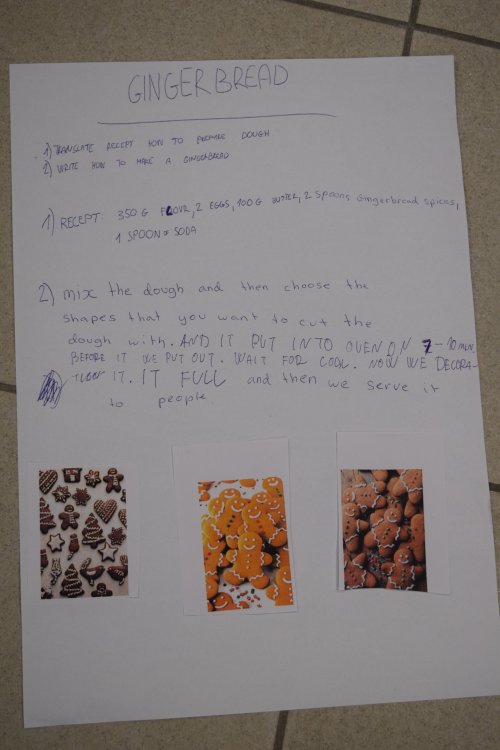 GINGERBREAD
1) TRANSLATE RECEPT HOW TO PREPARE DOUGH
2) WRITE HOW TO MAKE A GINGERBREAD
1) RECEPT: 350 G FLOUR, 2 EGGS, 100 G BUTTER, 2 Spoons Gingerbread spices,
1 SPOON OF SODA
2) mix the dough and then choose the
shapes that you want to cut the
dough with. AND IT PUT INTO OVEN ON 7-10 MIN.
BEFORE IT WE PUT OUT. WAIT FOR COOL. NOW WE DECORA-
TION IT. IT FULL and then we serve it
to people.